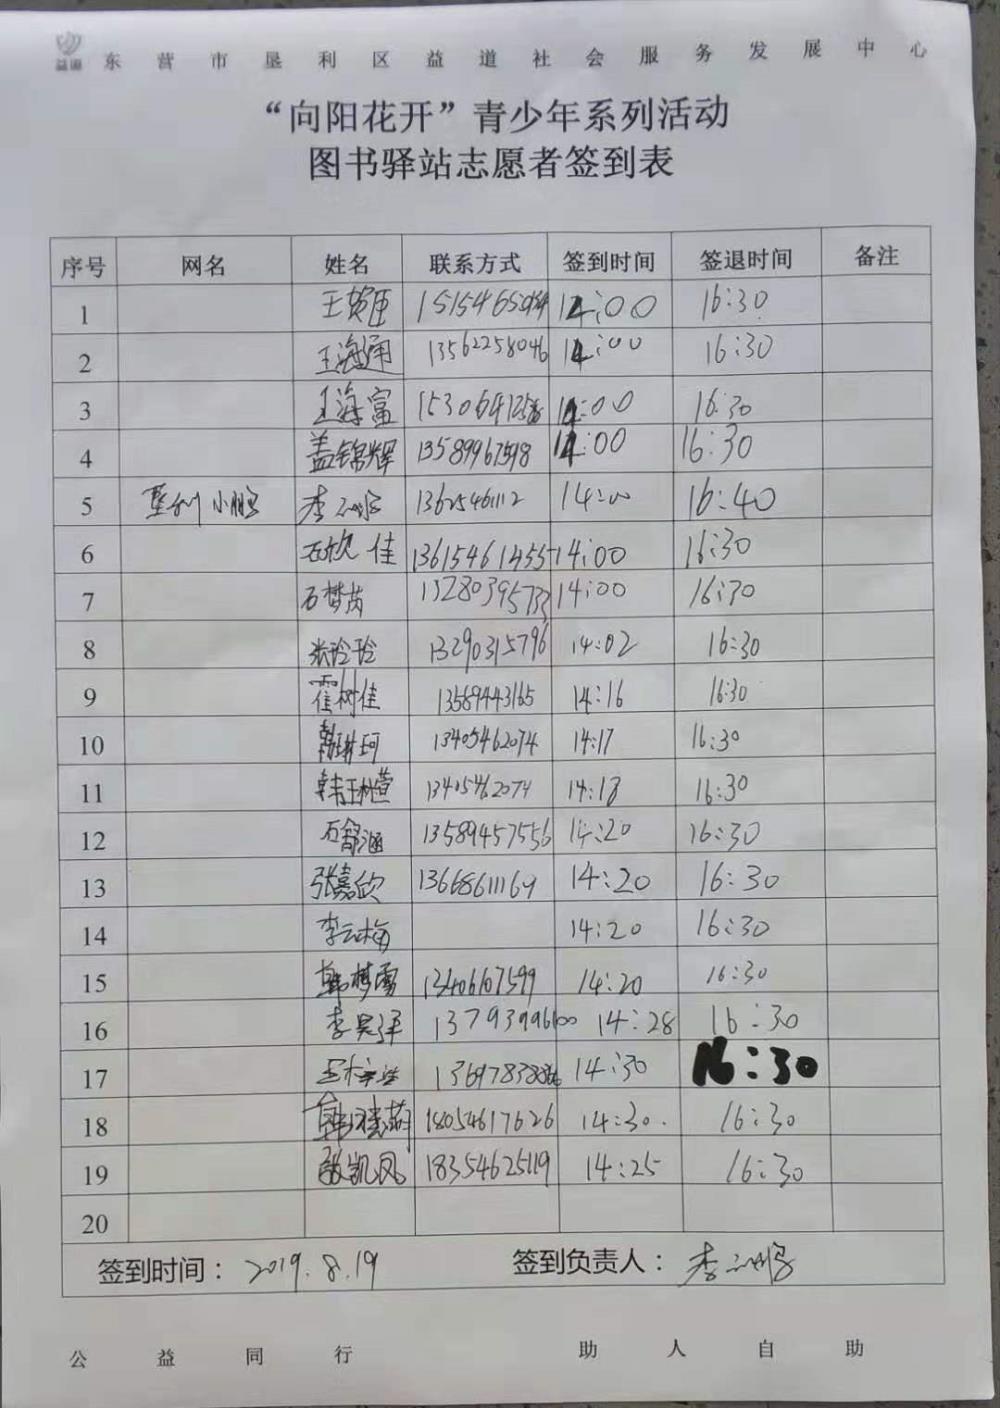 益道 东营市垦利区益道社会服务发展中心
“向阳花开”青少年系列活动
图书驿站志愿者签到表
序号 网名 姓名 联系方式 签到时间 签退时间 备注
1 14:00 16:30
2 王海通 13562258046 14:00 16:30
3 王海富 14:00 16:30
4 盖锦辉 14:00 16:30
5 垦利小鹏 13625461112 14:00 16:40
6 佳 13615461455 14:00 16:30
7 石梦茜 14:00 16:30
8 张玲玲 13290315796 14:02 16:30
9 霍树佳 13589443165 14:16 16:30
10 韩琳珂 13405462074 14:17 16:30
11 13405462074 14:18 16:30
12 石舒涵 13589457556 14:20 16:30
13 张嘉欣 13668611169 14:20 16:30
14 李云梅 14:20 16:30
15 韩梦雪 13406107599 14:20 16:30
16 李昊泽 13793996100 14:28 16:30
17 14:30 16:30
18 18054617626 14:30. 16:30
19 凯风 18354625119 14:25 16:30
20
签到时间：2019.8.19 签到负责人：
公益同行 助人自助